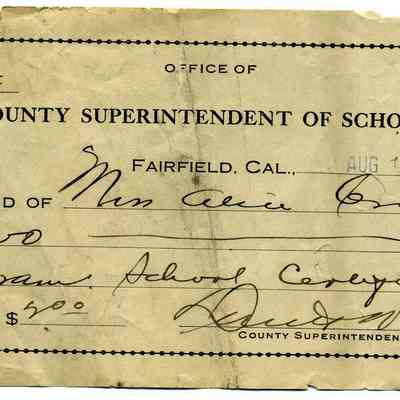 OFFICE OF
COUNTY SUPERINTENDENT OF SCHO
FAIRFIELD, CAL., AUG 1
D OF Miss Alice
wo
ram. School
$ 2.00
COUNTY SUPERINTENDENT